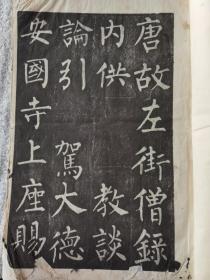 唐故左街僧録
内供　教談
論引　駕大德
安國寺上座賜